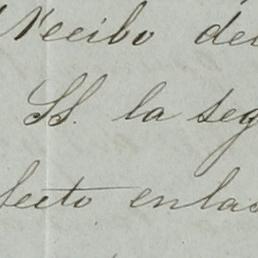 Recibo del
SS. la seg
fecto en las